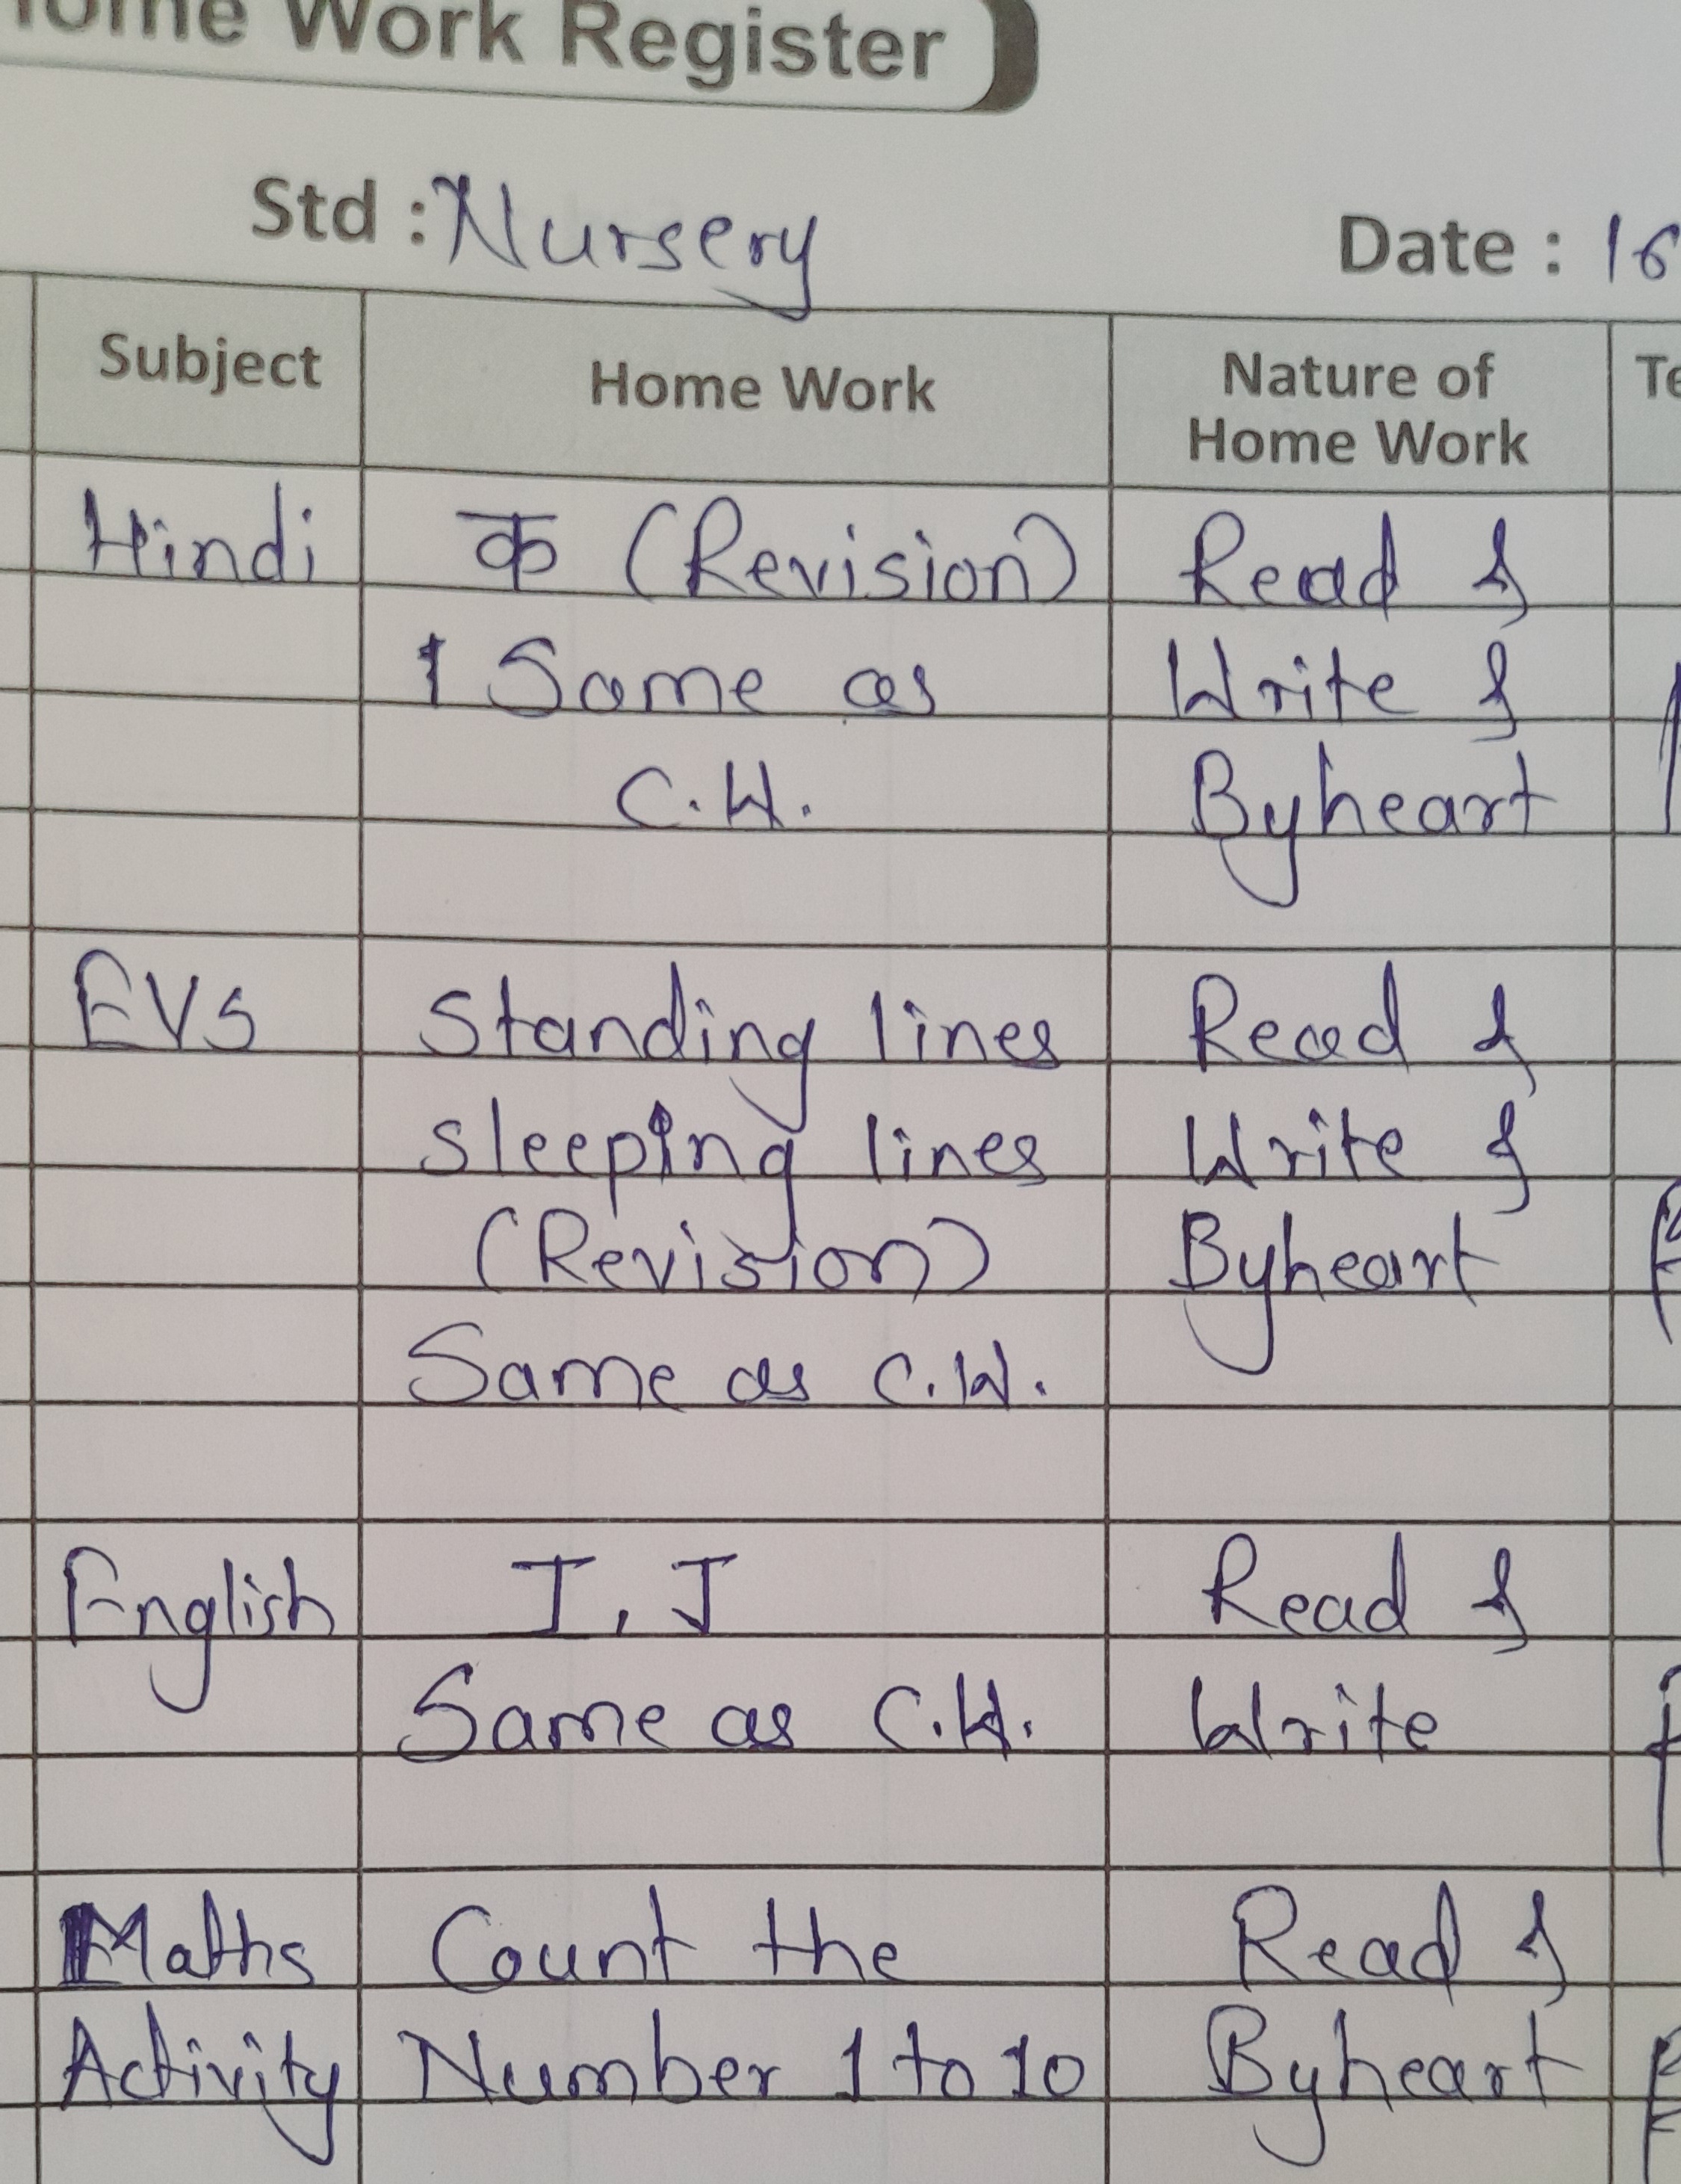 Home Work Register
Std : Nursery Date : 16
Subject Home Work Nature of Home Work
Hindi क (Revision) Read &
Same as Write &
C.W. Byheart
EVS Standing lines Read &
sleeping lines Write &
(Revision) Byheart
Same as C.W.
English I, J Read &
Same as C.W. Write
Maths Count the Read &
Activity Number 1 to 10 Byheart